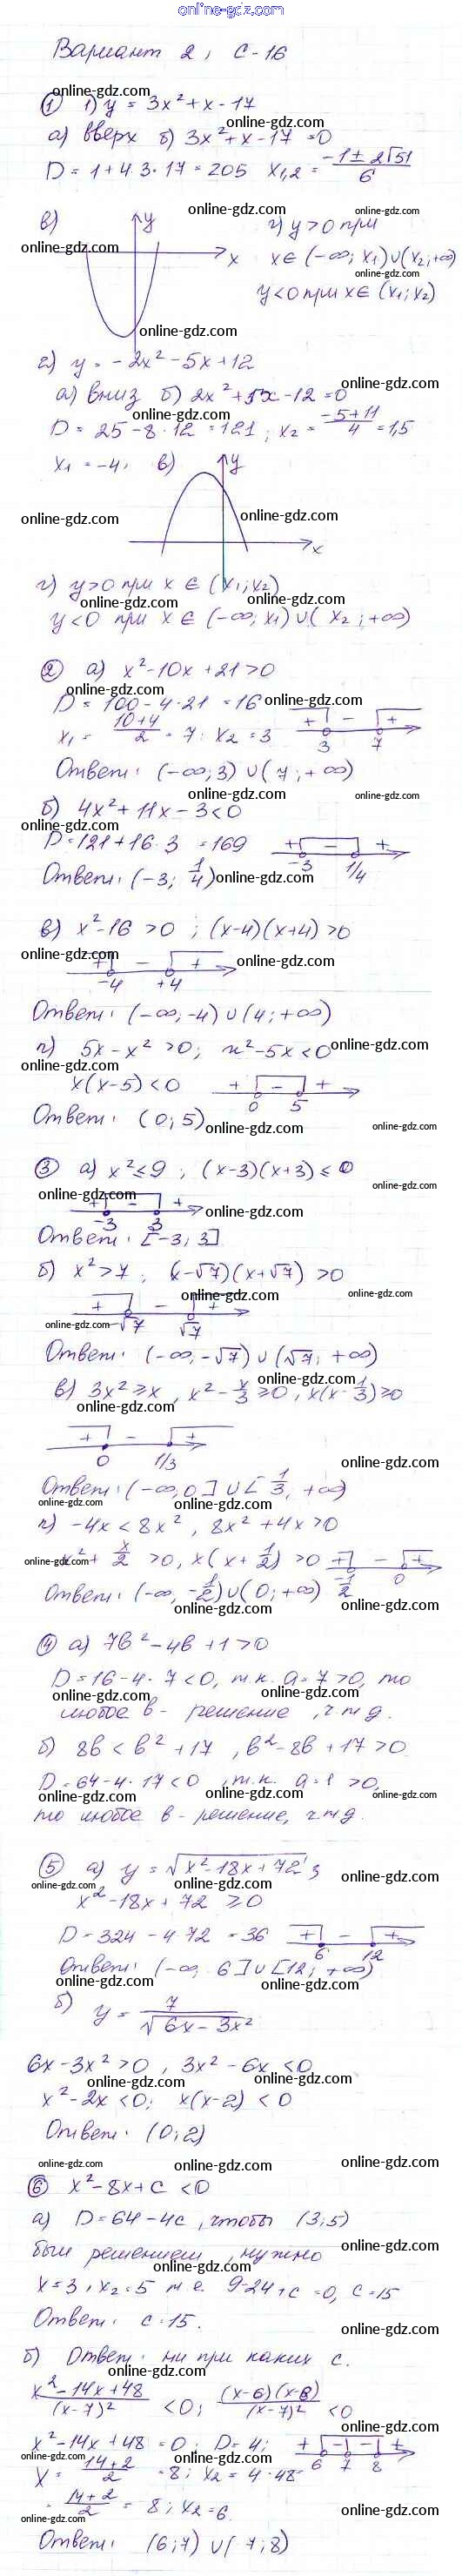 online-gdz.com
Вариант 2, С-16
① 1) y = 3x² + x - 17
а) вверх б) 3x² + x - 17 = 0
D = 1 + 4·3·17 = 205 x₁,₂ = (-1 ± 2√51)/6
в) y x г) y > 0 при
x ∈ (-∞; x₁) ∪ (x₂; +∞)
y < 0 при x ∈ (x₁; x₂)
2) y = -2x² - 5x + 12
а) вниз б) 2x² + 5x - 12 = 0
D = 25 - 8·12 = 121; x₂ = (-5+11)/4 = 1,5
x₁ = -4, в) y
x
г) y > 0 при x ∈ (x₁; x₂)
y < 0 при x ∈ (-∞; x₁) ∪ (x₂; +∞)
② а) x² - 10x + 21 > 0
D = 100 - 4·21 = 16
x₁ = (10+4)/2 = 7; x₂ = 3 + - + 3 7
Ответ: (-∞; 3) ∪ (7; +∞)
б) 4x² + 11x - 3 < 0
D = 121 + 16·3 = 169 + - + -3 1/4
Ответ: (-3; 1/4)
в) x² - 16 > 0; (x-4)(x+4) > 0
+ - + -4 +4
Ответ: (-∞; -4) ∪ (4; +∞)
г) 5x - x² > 0; x² - 5x < 0
x(x-5) < 0 + - + 0 5
Ответ: (0; 5)
③ а) x² ≤ 9; (x-3)(x+3) ≤ 0
+ - + -3 3
Ответ: [-3; 3]
б) x² > 7; (x-√7)(x+√7) > 0
+ - + -√7 √7
Ответ: (-∞; -√7) ∪ (√7; +∞)
в) 3x² ≥ x, x² - x/3 ≥ 0, x(x - 1/3) ≥ 0
+ - + 0 1/3
Ответ: (-∞, 0] ∪ [1/3, +∞)
г) -4x < 8x², 8x² + 4x > 0
x² + x/2 > 0, x(x + 1/2) > 0 + - + -1/2 0
Ответ: (-∞, -1/2) ∪ (0; +∞)
④ а) 7b² - 4b + 1 > 0
D = 16 - 4·7 < 0, т.к. a = 7 > 0, то
любое b - решение, ч.т.д.
б) 8b < b² + 17, b² - 8b + 17 > 0
D = 64 - 4·17 < 0, т.к. a = 1 > 0,
то любое b - решение, ч.т.д.
⑤ а) y = √(x² - 18x + 72);
x² - 18x + 72 ≥ 0
D = 324 - 4·72 = 36 + - + 6 12
Ответ: (-∞, 6] ∪ [12; +∞)
б) y = 7/√(6x - 3x²)
6x - 3x² > 0, 3x² - 6x < 0
x² - 2x < 0; x(x-2) < 0
Ответ: (0; 2)
⑥ x² - 8x + c < 0
а) D = 64 - 4c, чтобы (3; 5)
был решением, нужно
x = 3, x₂ = 5 т.е. 9 - 24 + c = 0, c = 15
Ответ: c = 15.
б) Ответ: ни при каких c.
(x² - 14x + 48)/(x-7)² < 0; (x-6)(x-8)/(x-7)² < 0
x² - 14x + 48 = 0; D = 4; + - - + 6 7 8
x = (14+2)/2 = 8; x₂ = 4·48
= (14+2)/2 = 8; x₂ = 6
Ответ: (6; 7) ∪ (7; 8)
online-gdz.com